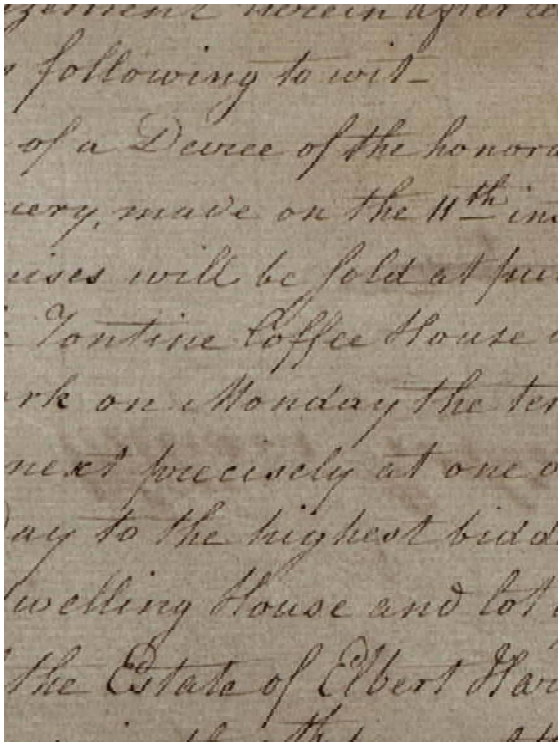 gement herein after
following to wit_
of a Decree of the honora
cery, made on the 11th ins
ises will be sold at pu
Tontine Coffee House
rk on Monday the ten
next precisely at one o
Day to the highest bidd
welling House and lot
the Estate of Elbert Har